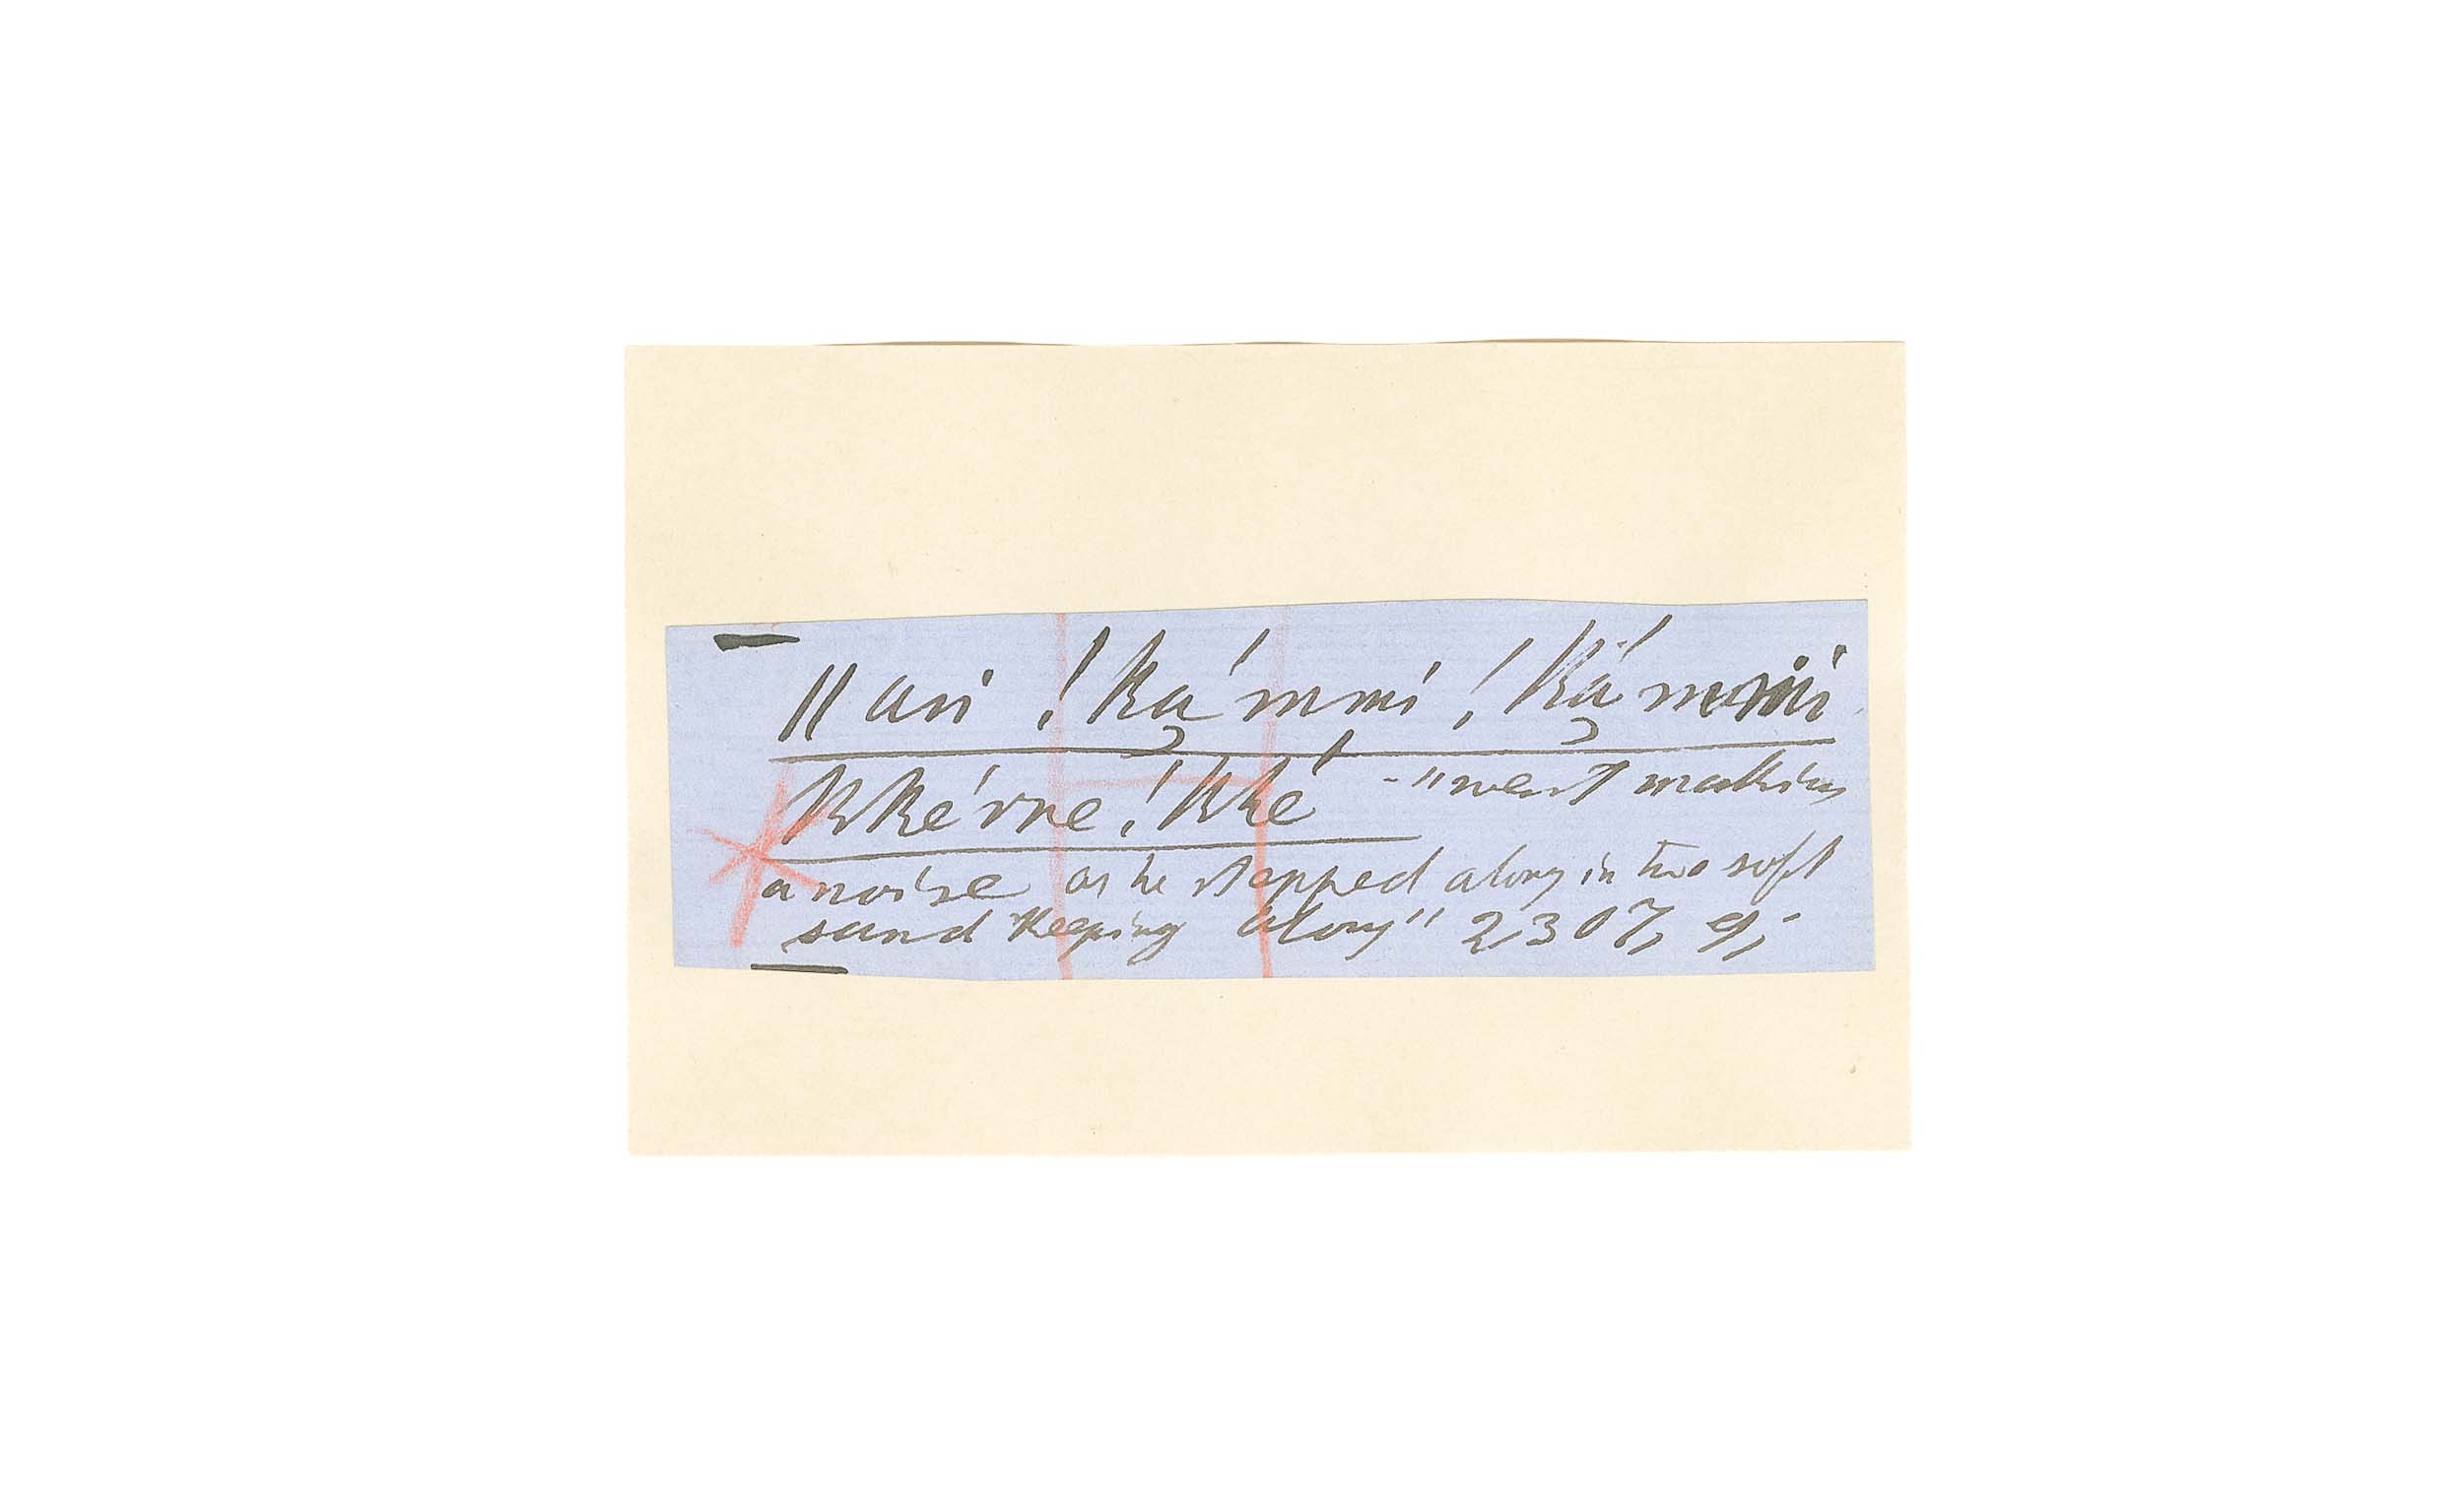 ǁan ǃką̄́mmi ǃką̄́mmi
kkérre ǃkhé - "went making
a noise as he stepped along in two soft
sand keeping along" 2307, 9,-